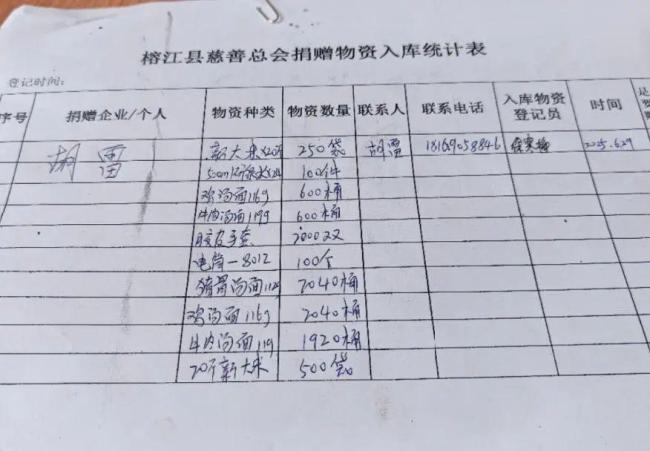 榕江县慈善总会捐赠物资入库统计表
登记时间:
序号 捐赠企业/个人 物资种类 物资数量 联系人 联系电话 入库物资登记员 时间 足
胡雷 新大米 250袋 胡雷 18169058846 2025.6.29
500ml 100件
鸡汤面116g 600桶
牛肉汤面119g 600桶
胶皮手套 2000双
电筒-8012 100个
猪骨汤面 2040桶
鸡汤面116g 2040桶
牛肉汤面119 1920桶
20斤新大米 500袋